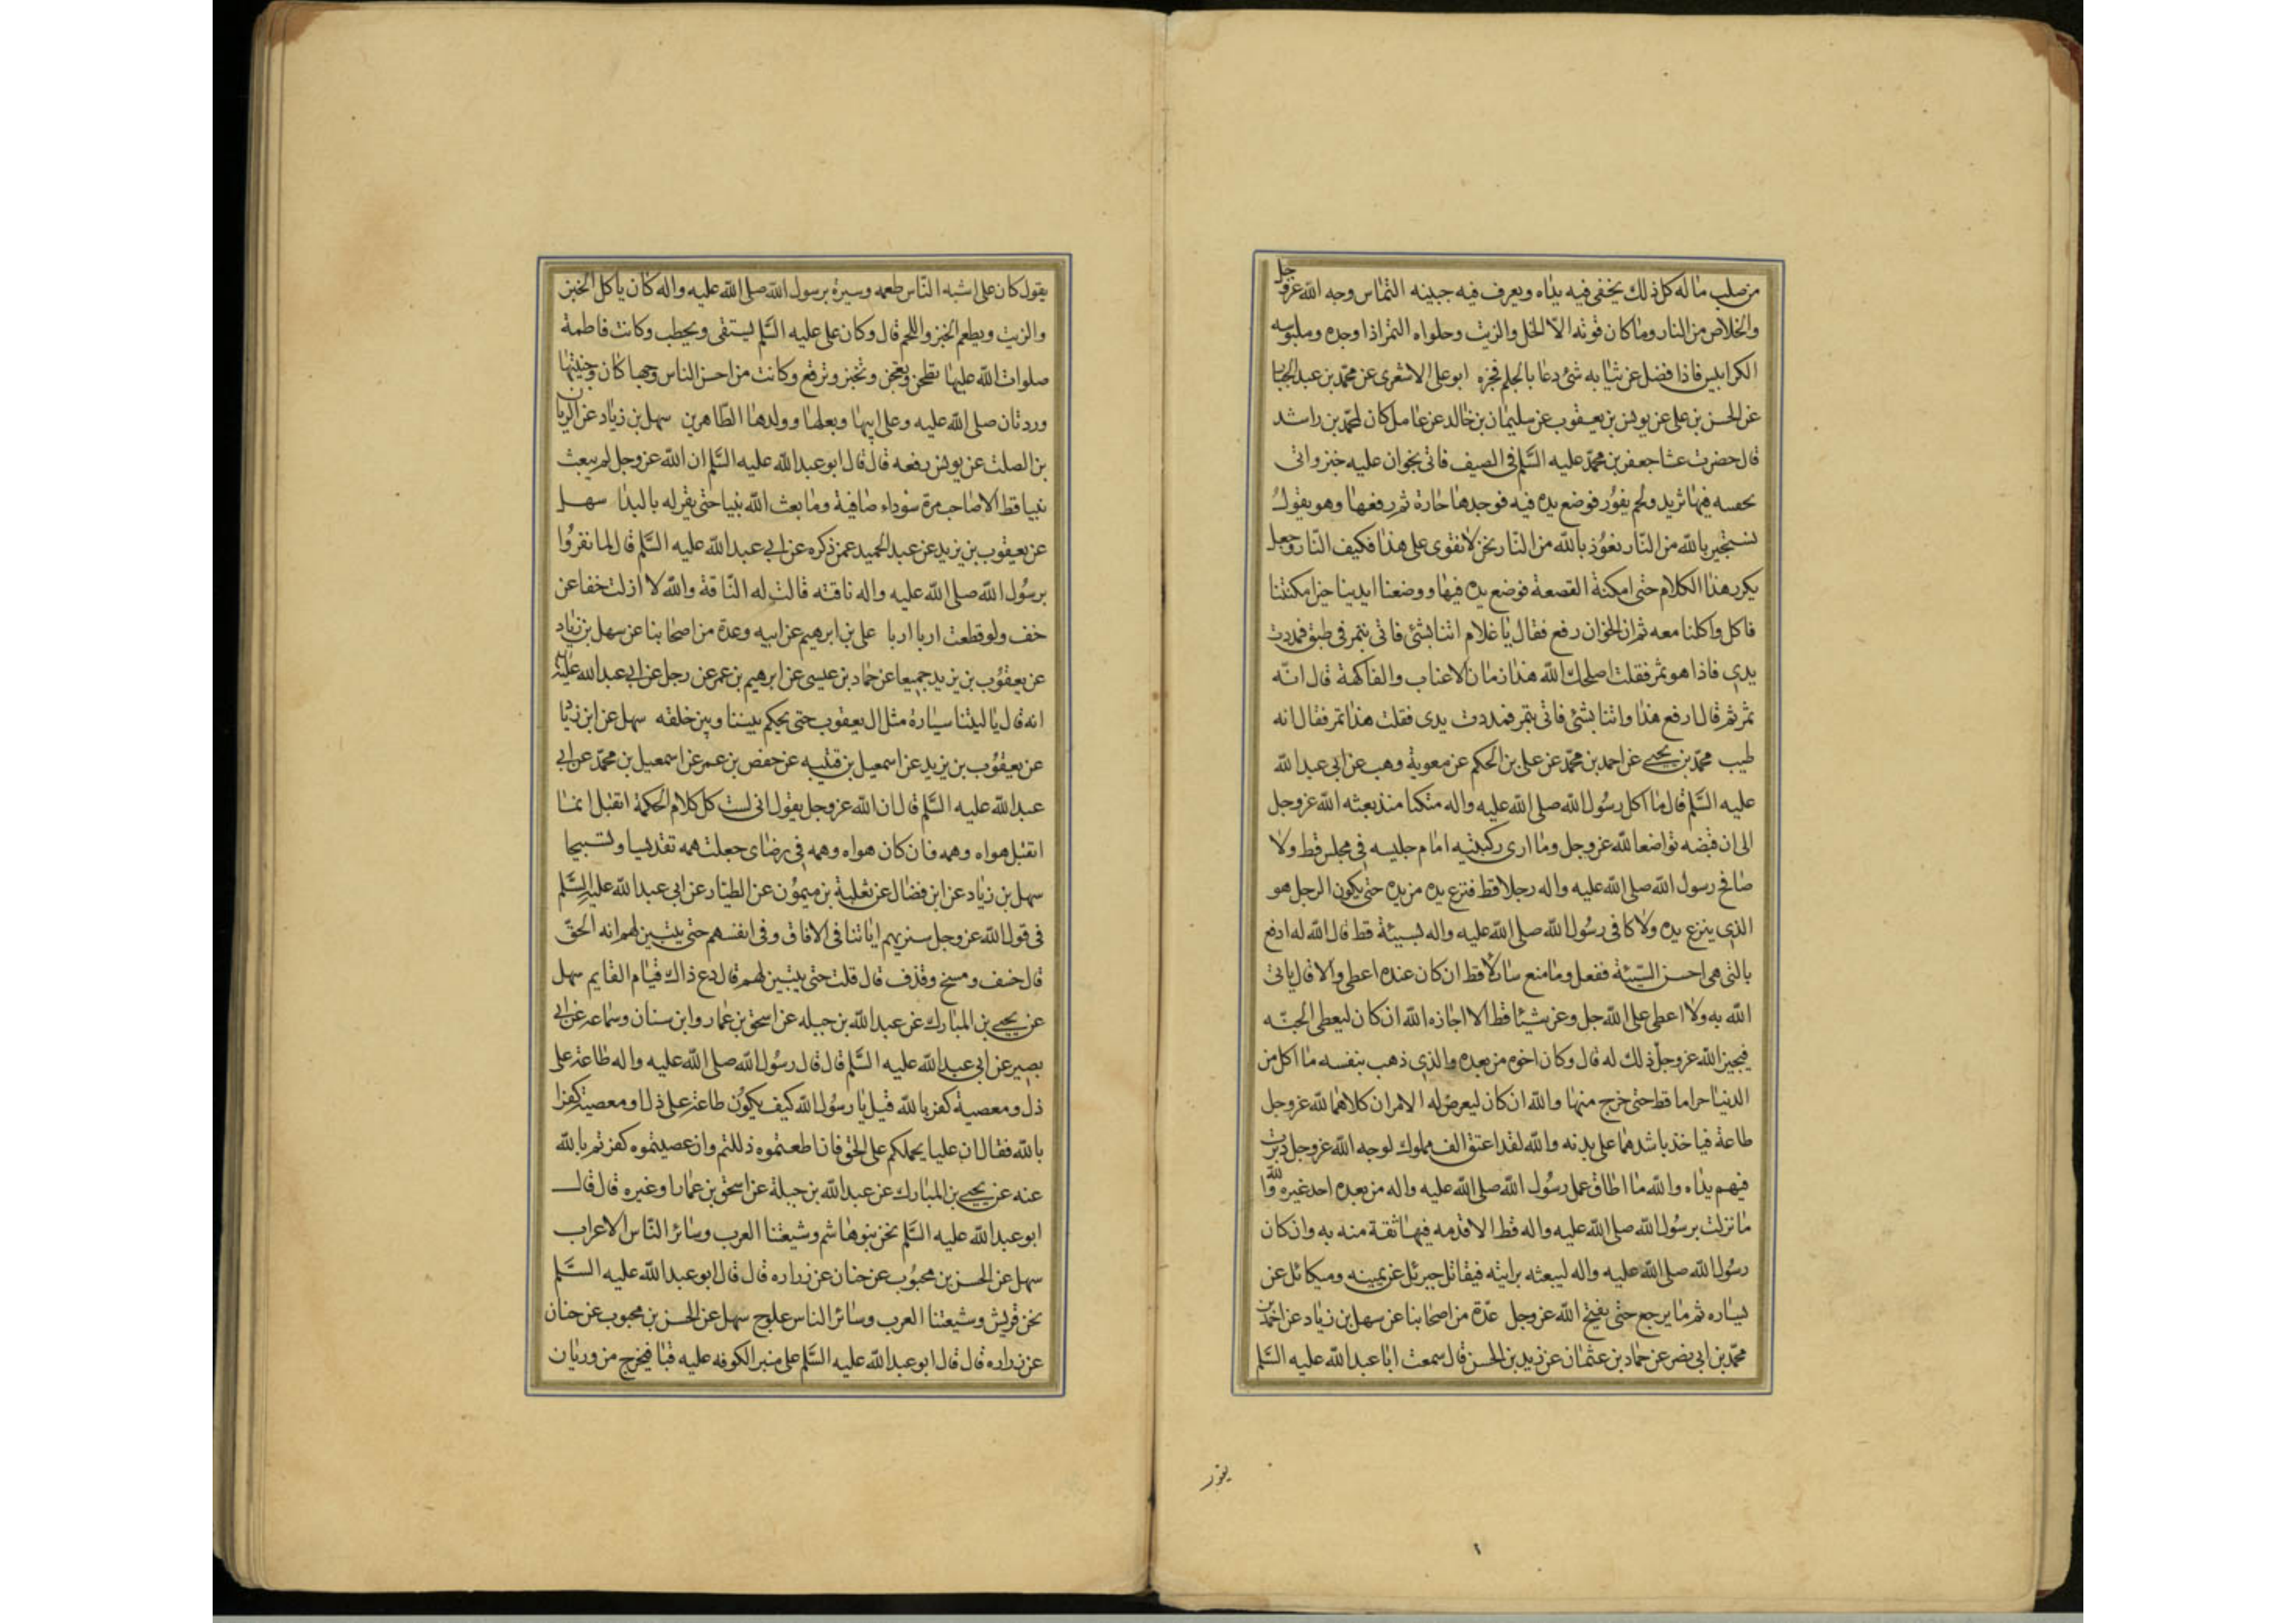 من صلب ماله كل ذلك يخفى فيه يداه ويعرف فيه جبينه التماس وجه الله عز وجل
والخلاص من النار وما كان قوته الا الخل والزيت وحلواه التمر اذا وجده وملبوسه
الكرابيس فاذا فضل عن ثيابه شئ دعا بالجلم فجزه ابو على الاشعرى عن محمد بن عبد الجبار
عن الحسن بن على عن يونس بن يعقوب عن سليمان بن خالد عن عامل كان لمحمد بن راشد
قال حضرت عشا جعفر بن محمد عليه السلم فى الصيف فاتى بخوان عليه خبز واتى
بحفسه فيها ثريد ولحم يفور فوضع يده فيه فوجدها حارة ثم رفعها وهو يقول
نستجير بالله من النار نعوذ بالله من النار نحن لا نقوى على هذا فكيف النار وجعل
يكرر هذا الكلام حتى امكنة القصعة فوضع يده فيها ووضعنا ايدينا حين امكنتنا
فاكل واكلنا معه ثم ان الخوان رفع فقال يا غلام ائتنا بشئ فاتى بتمر فى طبق فمددت
يدى فاذا هو تمر فقلت اصلحك الله هذا زمان الاعناب والفاكهة قال انه
تمر ثم قال ارفع هذا وائتنا بشئ فاتى بتمر فمددت يدى فقلت هذا تمر فقال انه
طيب محمد بن يحيى عن احمد بن محمد عن على بن الحكم عن معوية وهب عن ابى عبد الله
عليه السلم قال ما اكل رسول الله صلى الله عليه واله متكئا منذ بعثه الله عز وجل
الى ان قبضه تواضعا لله عز وجل وما ارى ركبتيه امام جليسه فى مجلس قط ولا
صافح رسول الله صلى الله عليه واله رجلا قط فنزع يده من يده حتى يكون الرجل هو
الذى ينزع يده ولا كافى رسول الله صلى الله عليه واله بسيئة قط قال الله له ادفع
بالتى هى احسن السيئة ففعل وما منع سائلا قط ان كان عنده اعطى والا قال ياتى
الله به ولا اعطى على الله جل وعز شيئا قط الا اجازه الله ان كان ليعطى الجنه
فيجيز الله عز وجل ذلك له قال وكان اخوه من بعده والذى ذهب بنفسه ما اكل من
الدنيا حراما قط حتى خرج منها والله ان كان ليعرض له الامران كلاهما لله عز وجل
طاعة فياخذ باشدهما على بدنه والله لقد اعتق الف مملوك لوجه الله عز وجل دبرت
فيهم يداه والله ما اطاق عمل رسول الله صلى الله عليه واله من بعده احد غيره والله
ما نزلت برسول الله صلى الله عليه واله قط الا قدمه فيها ثقة منه به وان كان
رسول الله صلى الله عليه واله ليبعثه برايته فيقاتل جبرئل عن يمينه وميكائل عن
يساره ثم ما يرجع حتى يفتح الله عز وجل عدة من اصحابنا عن سهل بن زياد عن احمد بن
محمد بن ابى نصر عن حماد بن عثمان عن زيد بن الحسن قال سمعت ابا عبد الله عليه السلم
يقول
يقول كان على اشبه الناس طعمه وسيرة برسول الله صلى الله عليه واله كان ياكل الخبز
والزيت ويطعم الخبز واللحم قال وكان على عليه السلم ليستقى ويحطب وكانت فاطمة
صلوات الله عليها تطحن وتعجن وتخبز وترقع وكانت من احسن الناس وجها كان وجنتيها
وردتان صلى الله عليه وعلى ابيها وبعلها وولدها الطاهرين سهل بن زياد عن الريان
بن الصلت عن يونس رفعه قال قال ابو عبد الله عليه السلم ان الله عز وجل لم يبعث
نبيا قط الا صاحب مرة سوداء صافية وما بعث الله نبيا حتى يقر له بالبدا سهل
عن يعقوب بن يزيد عن عبد الحميد عمن ذكره عن ابى عبد الله عليه السلم قال لما نفروا
برسول الله صلى الله عليه واله ناقته قالت له الناقة والله لا ازلت خفا عن
خف ولو قطعت اربا اربا على بن ابرهيم عن ابيه وعدة من اصحابنا عن سهل بن زياد
عن يعقوب بن يزيد جميعا عن حماد بن عيسى عن ابرهيم بن عمر عن رجل عن ابى عبد الله عليه السلم
انه قال يا ليتنا سيارة مثل ال يعقوب حتى يحكم بيننا وبين خلقه سهل عن ابن زياد
عن يعقوب بن يزيد عن اسمعيل بن قتيبه عن حفص بن عمر عن اسمعيل بن محمد عن ابى
عبد الله عليه السلم قال ان الله عز وجل يقول انى لست كل كلام الحكمة اتقبل انما
اتقبل هواه وهمه فان كان هواه وهمه فى رضاى جعلت همه تقديسا وتسبيحا
سهل بن زياد عن ابن فضال عن ثعلبة بن ميمون عن الطيار عن ابى عبد الله عليه السلم
فى قول الله عز وجل سنريهم اياتنا فى الافاق وفى انفسهم حتى يتبين لهم انه الحق
قال خسف ومسخ وقذف قال قلت حتى يتبين لهم قال دع ذاك قيام القايم سهل
عن يحيى بن المبارك عن عبد الله بن جبله عن اسحق بن عمار وابن سنان وسماعه عن ابى
بصير عن ابى عبد الله عليه السلم قال قال رسول الله صلى الله عليه واله طاعة على
ذل ومعصية كفر بالله قيل يا رسول الله كيف يكون طاعة على ذلا ومعصيته كفرا
بالله فقال ان عليا يحملكم على الحق فان اطعتموه ذللتم وان عصيتموه كفرتم بالله
عنه عن يحيى بن المبارك عن عبد الله بن جبلة عن اسحق بن عمار او غيره قال قال
ابو عبد الله عليه السلم نحن بنو هاشم وشيعتنا العرب وسائر الناس الاعراب
سهل عن الحسن بن محبوب عن حنان عن زراره قال قال ابو عبد الله عليه السلم
نحن قريش وشيعتنا العرب وسائر الناس علوج سهل عن الحسن بن محبوب عن حنان
عن زراره قال قال ابو عبد الله عليه السلم على منبر الكوفه عليه قبا فيخرج من وريان